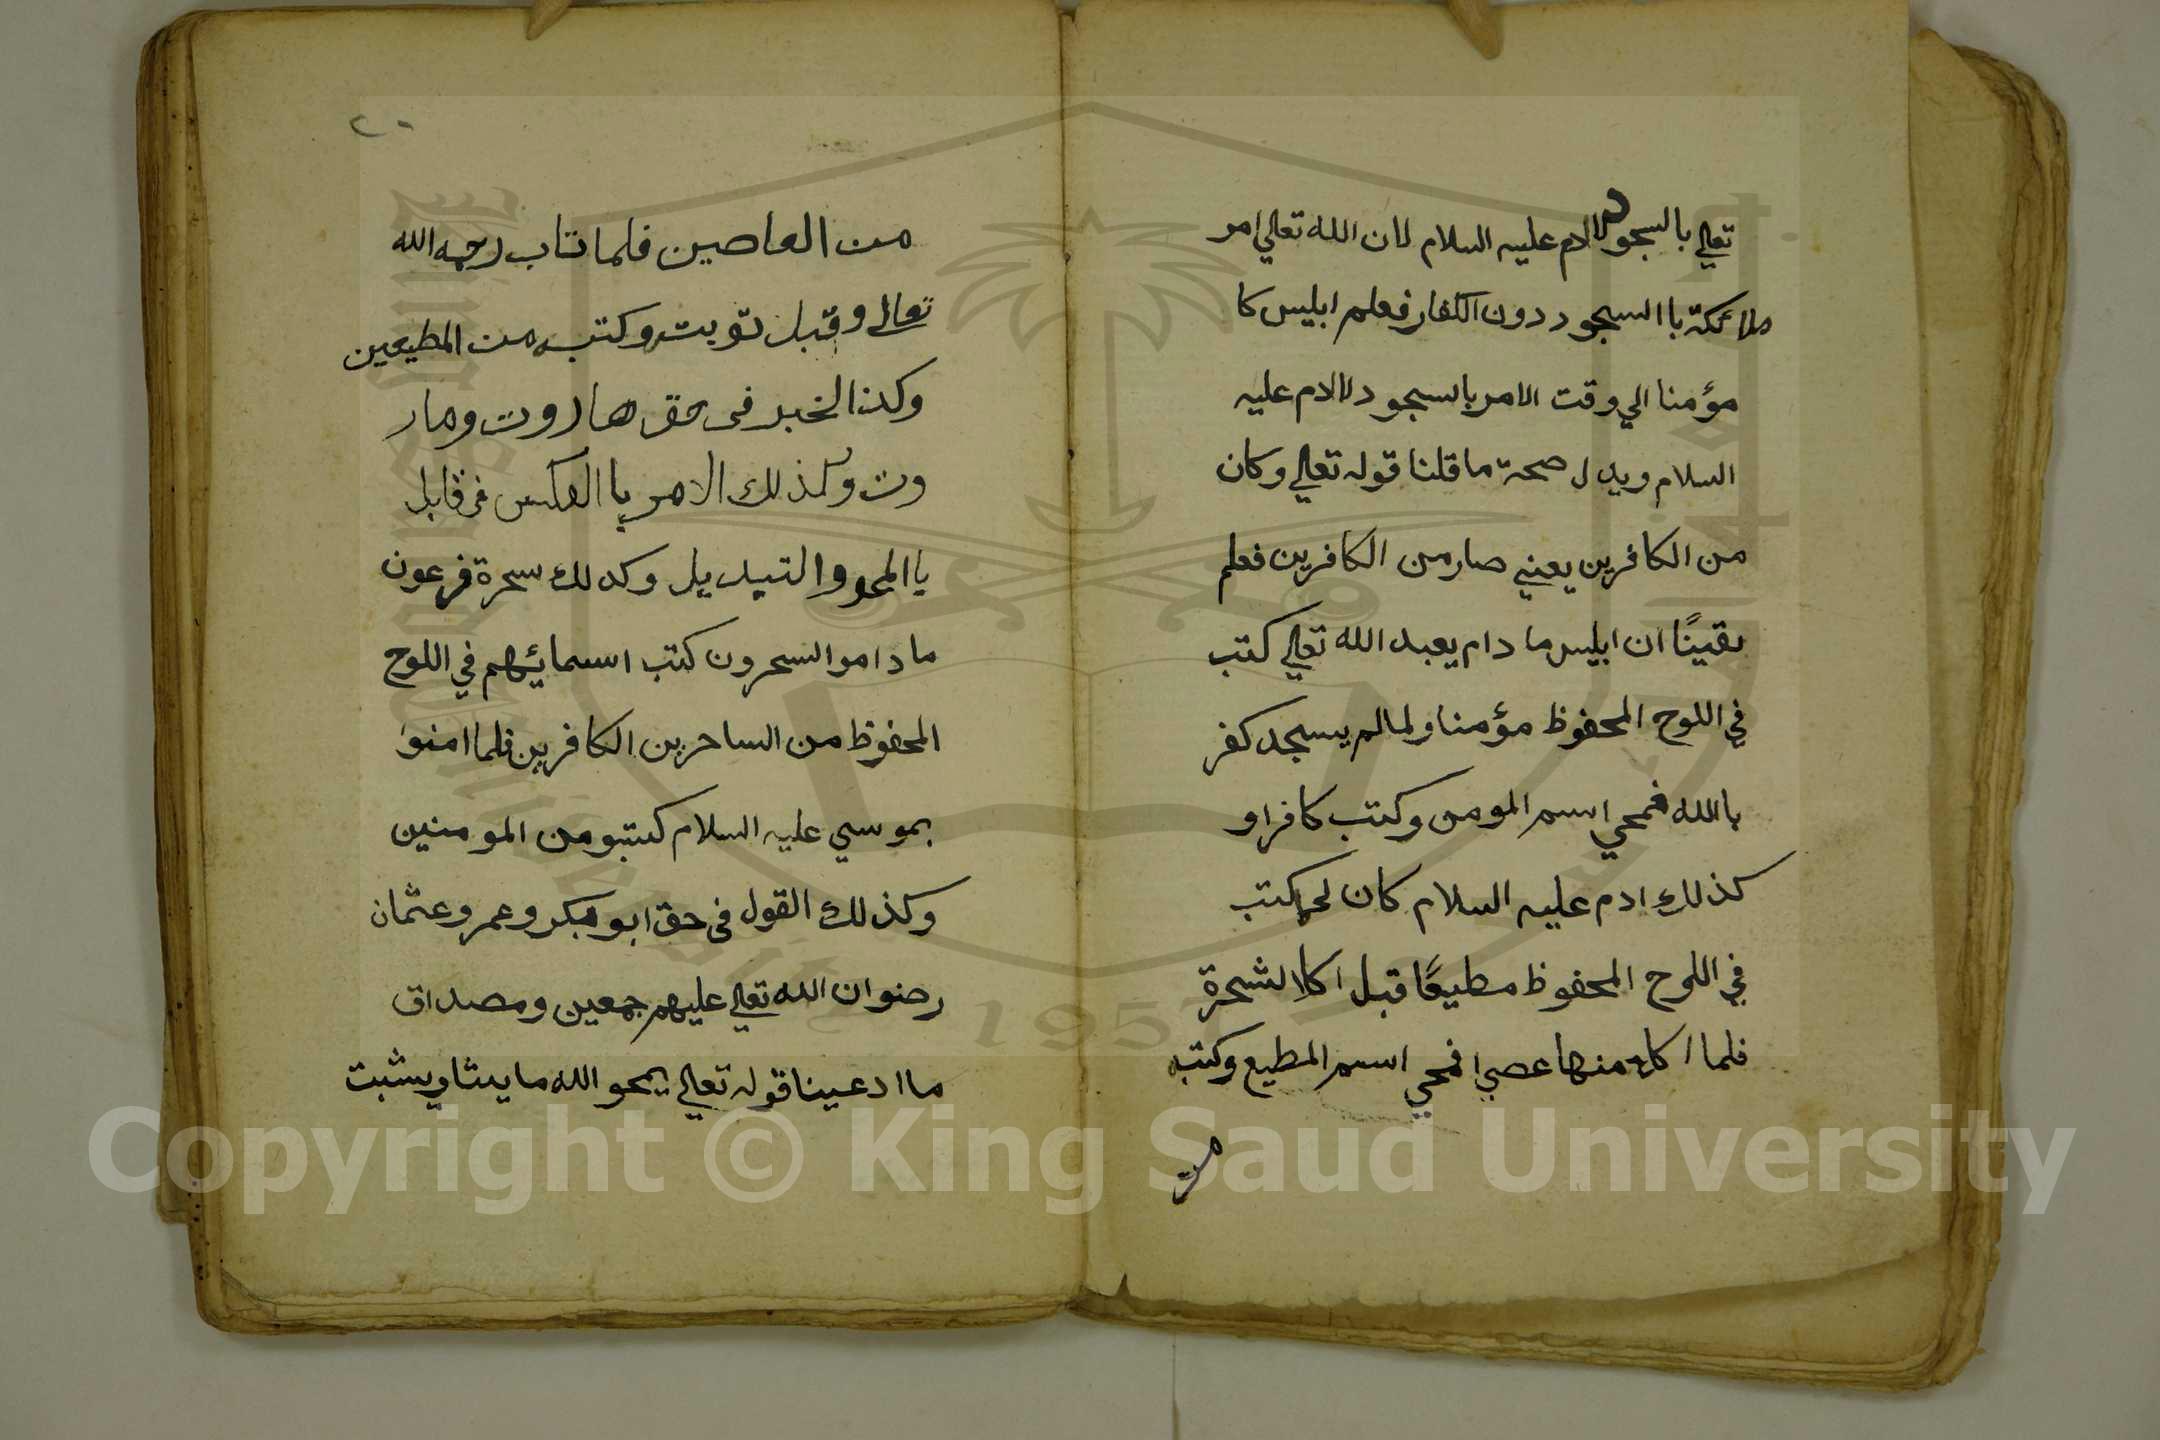 تعالي بالسجود لادم عليه السلام لان الله تعالي امر
ملائكة باالسجود دون الكفار فعلم ابليس كا
مؤمنا الي وقت الامر بالسجود لالادم عليه
السلام ويدل صحة ما قلنا قوله تعالي وكان
من الكافرين يعني صار من الكافرين فعلم
يقينًا ان ابليس ما دام يعبد الله تعالي كتب
في اللوح المحفوظ مؤمنا ولما لم يسجد كفر
باالله فمحي اسم المومن وكتب كافرا و
كذلك ادم عليه السلام كان كتب
في اللوح المحفوظ مطيعًا قبل اكل الشجرة
فلما اكل منها عصي فمحي اسم المطيع وكتب
من
٢٠
من العاصين فلما تاب رحمه الله
تعالي وقبل توبته وكتب من المطيعين
وكذا الخبر في حق هاروت ومار
وت وكذلك الامر باالعكس في قابل
باالمحو والتبديل وكذلك سحرة فرعون
ما داموا السحرون كتب اسمائهم في اللوح
المحفوظ من الساحرين الكافرين فلما امنوا
بموسي عليه السلام كتبو من المومنين
وكذلك القول في حق ابو بكر وعمر وعثمان
رضوان الله تعالي عليهم جمعين ومصداق
ما ادعينا قوله تعالي يمحو الله ما يشا ويثبت
King Saud University
1957
Copyright © King Saud University